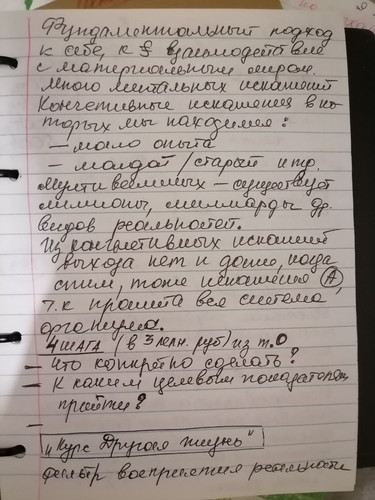 Фундаментальный подход
к себе, к взаимодействию
с материальным миром.
Много ментальных искажений
Когнетивные искажения в ко-
торых мы находимся:
— мало опыта
— молодой / старый и тд.
Мультивселенных — существует
милионы, миллиарды др.
видов реальностей.
Из когнетивных искажений
выхода нет и даже, когда
спим, тоже искажения А,
т.к прошита вся система
организма.
4 ШАГА (в 3 млн. руб) из т.О
— Что конкретно сделать?
— К каким целевым показателям
прийти?
—
"Курс Другая жизнь"
фильтр восприятия реальности